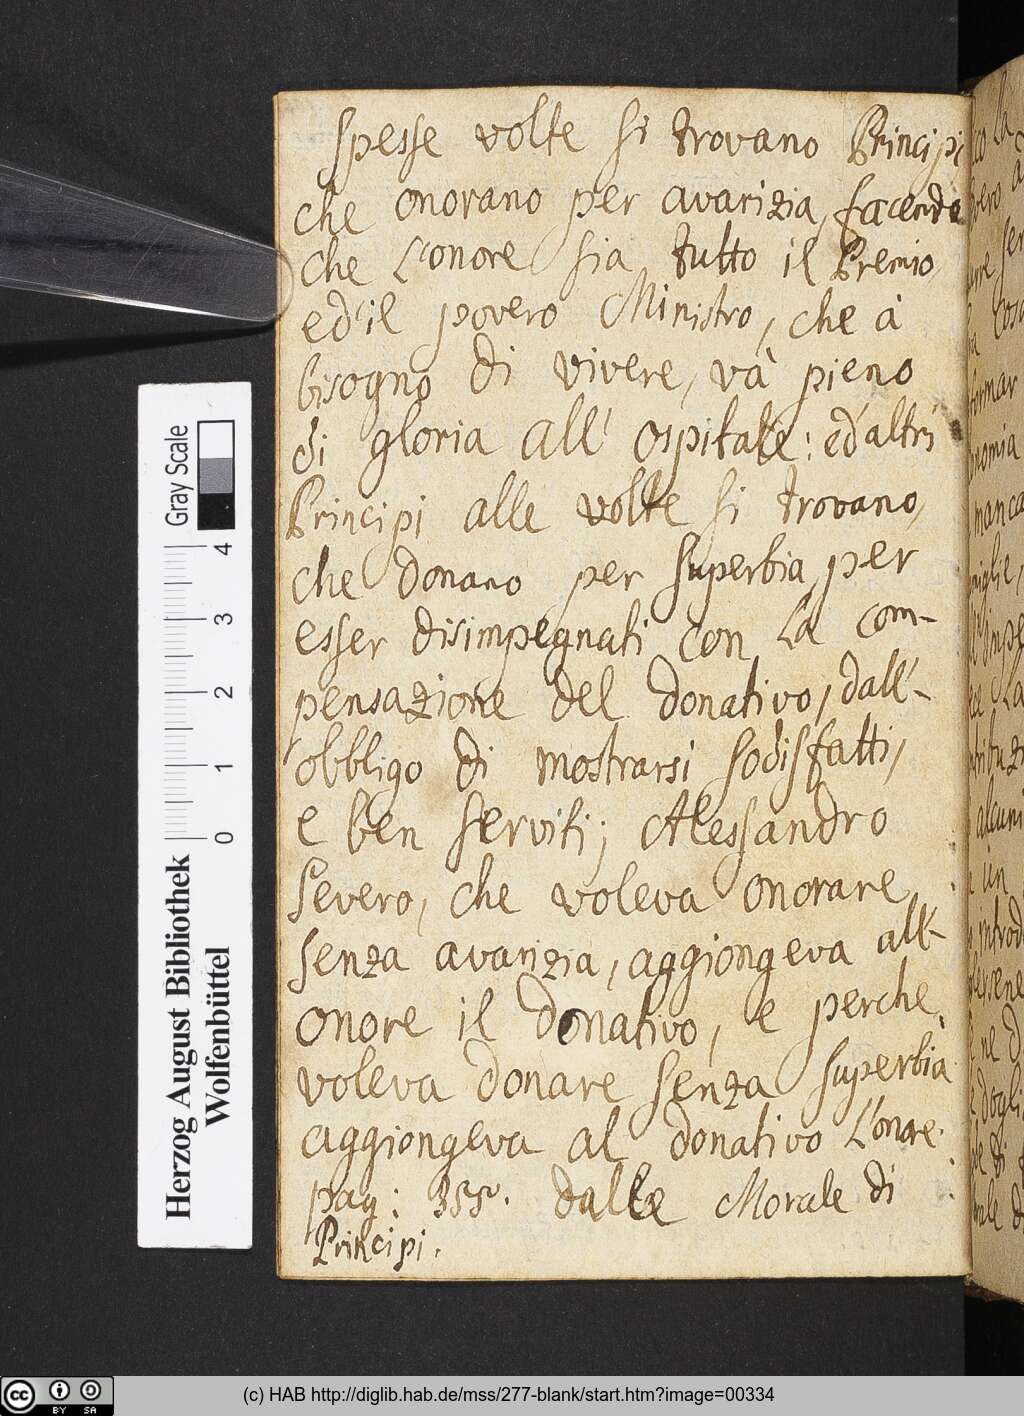 Spesse volte si trovano Principi
che onorano per avarizia, facendo
che L'onore sia tutto il Premio,
ed'il povero Ministro, che à
bisogno di vivere, và pieno
di gloria all' ospitale: ed'altri
Principi alle volte si trovano,
che donano per superbia, per
esser disimpegnati con La com-
pensazione del donativo, dall'-
obbligo di mostrarsi sodisfatti,
e ben serviti; Alessandro
Severo, che voleva onorare
senza avarizia, aggiongeva all'-
onore il donativo, e perche
voleva donare senza superbia
aggiongeva al donativo L'onore.
pag: 355. dalle Morale di
Principi.
Gray Scale
4
3
2
1
0
Herzog August Bibliothek
Wolfenbüttel
cc BY SA
(c) HAB http://diglib.hab.de/mss/277-blank/start.htm?image=00334